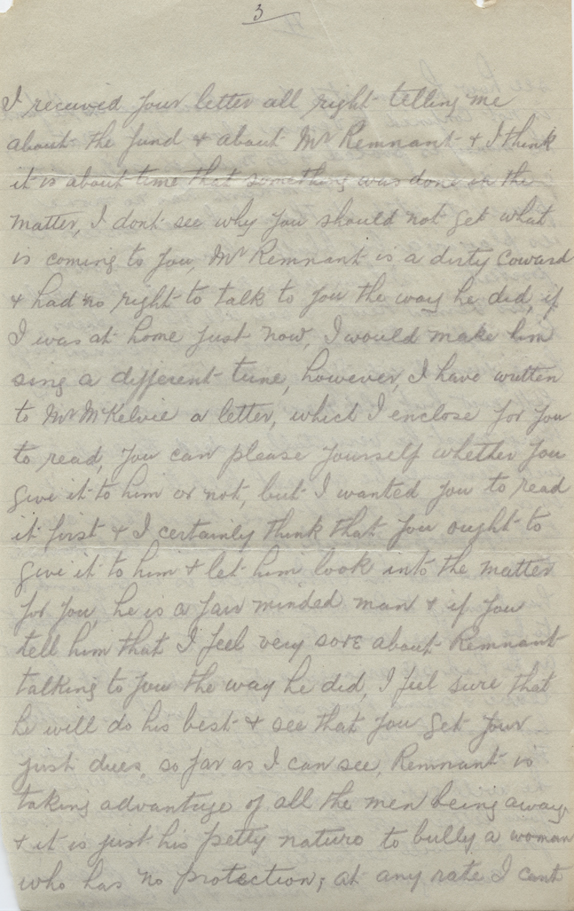 3
I received your letter all right telling me
about the fund & about Mr Remnant & I think
it is about time that something was done in the
matter, I dont see why you should not get what
is coming to you, Mr Remnant is a dirty coward
& had no right to talk to you the way he did, if
I was at home just now, I would make him
sing a different tune, however, I have written
to Mr McKelvie a letter, which I enclose for you
to read, you can please yourself whether you
give it to him or not, but I wanted you to read
it first & I certainly think that you ought to
give it to him & let him look into the matter
for you, he is a fair minded man & if you
tell him that I feel very sore about Remnant
talking to you the way he did, I feel sure that
he will do his best & see that you get your
just dues, so far as I can see, Remnant is
taking advantage of all the men being away
& it is just his petty nature to bully a woman
who has no protection; at any rate I cant